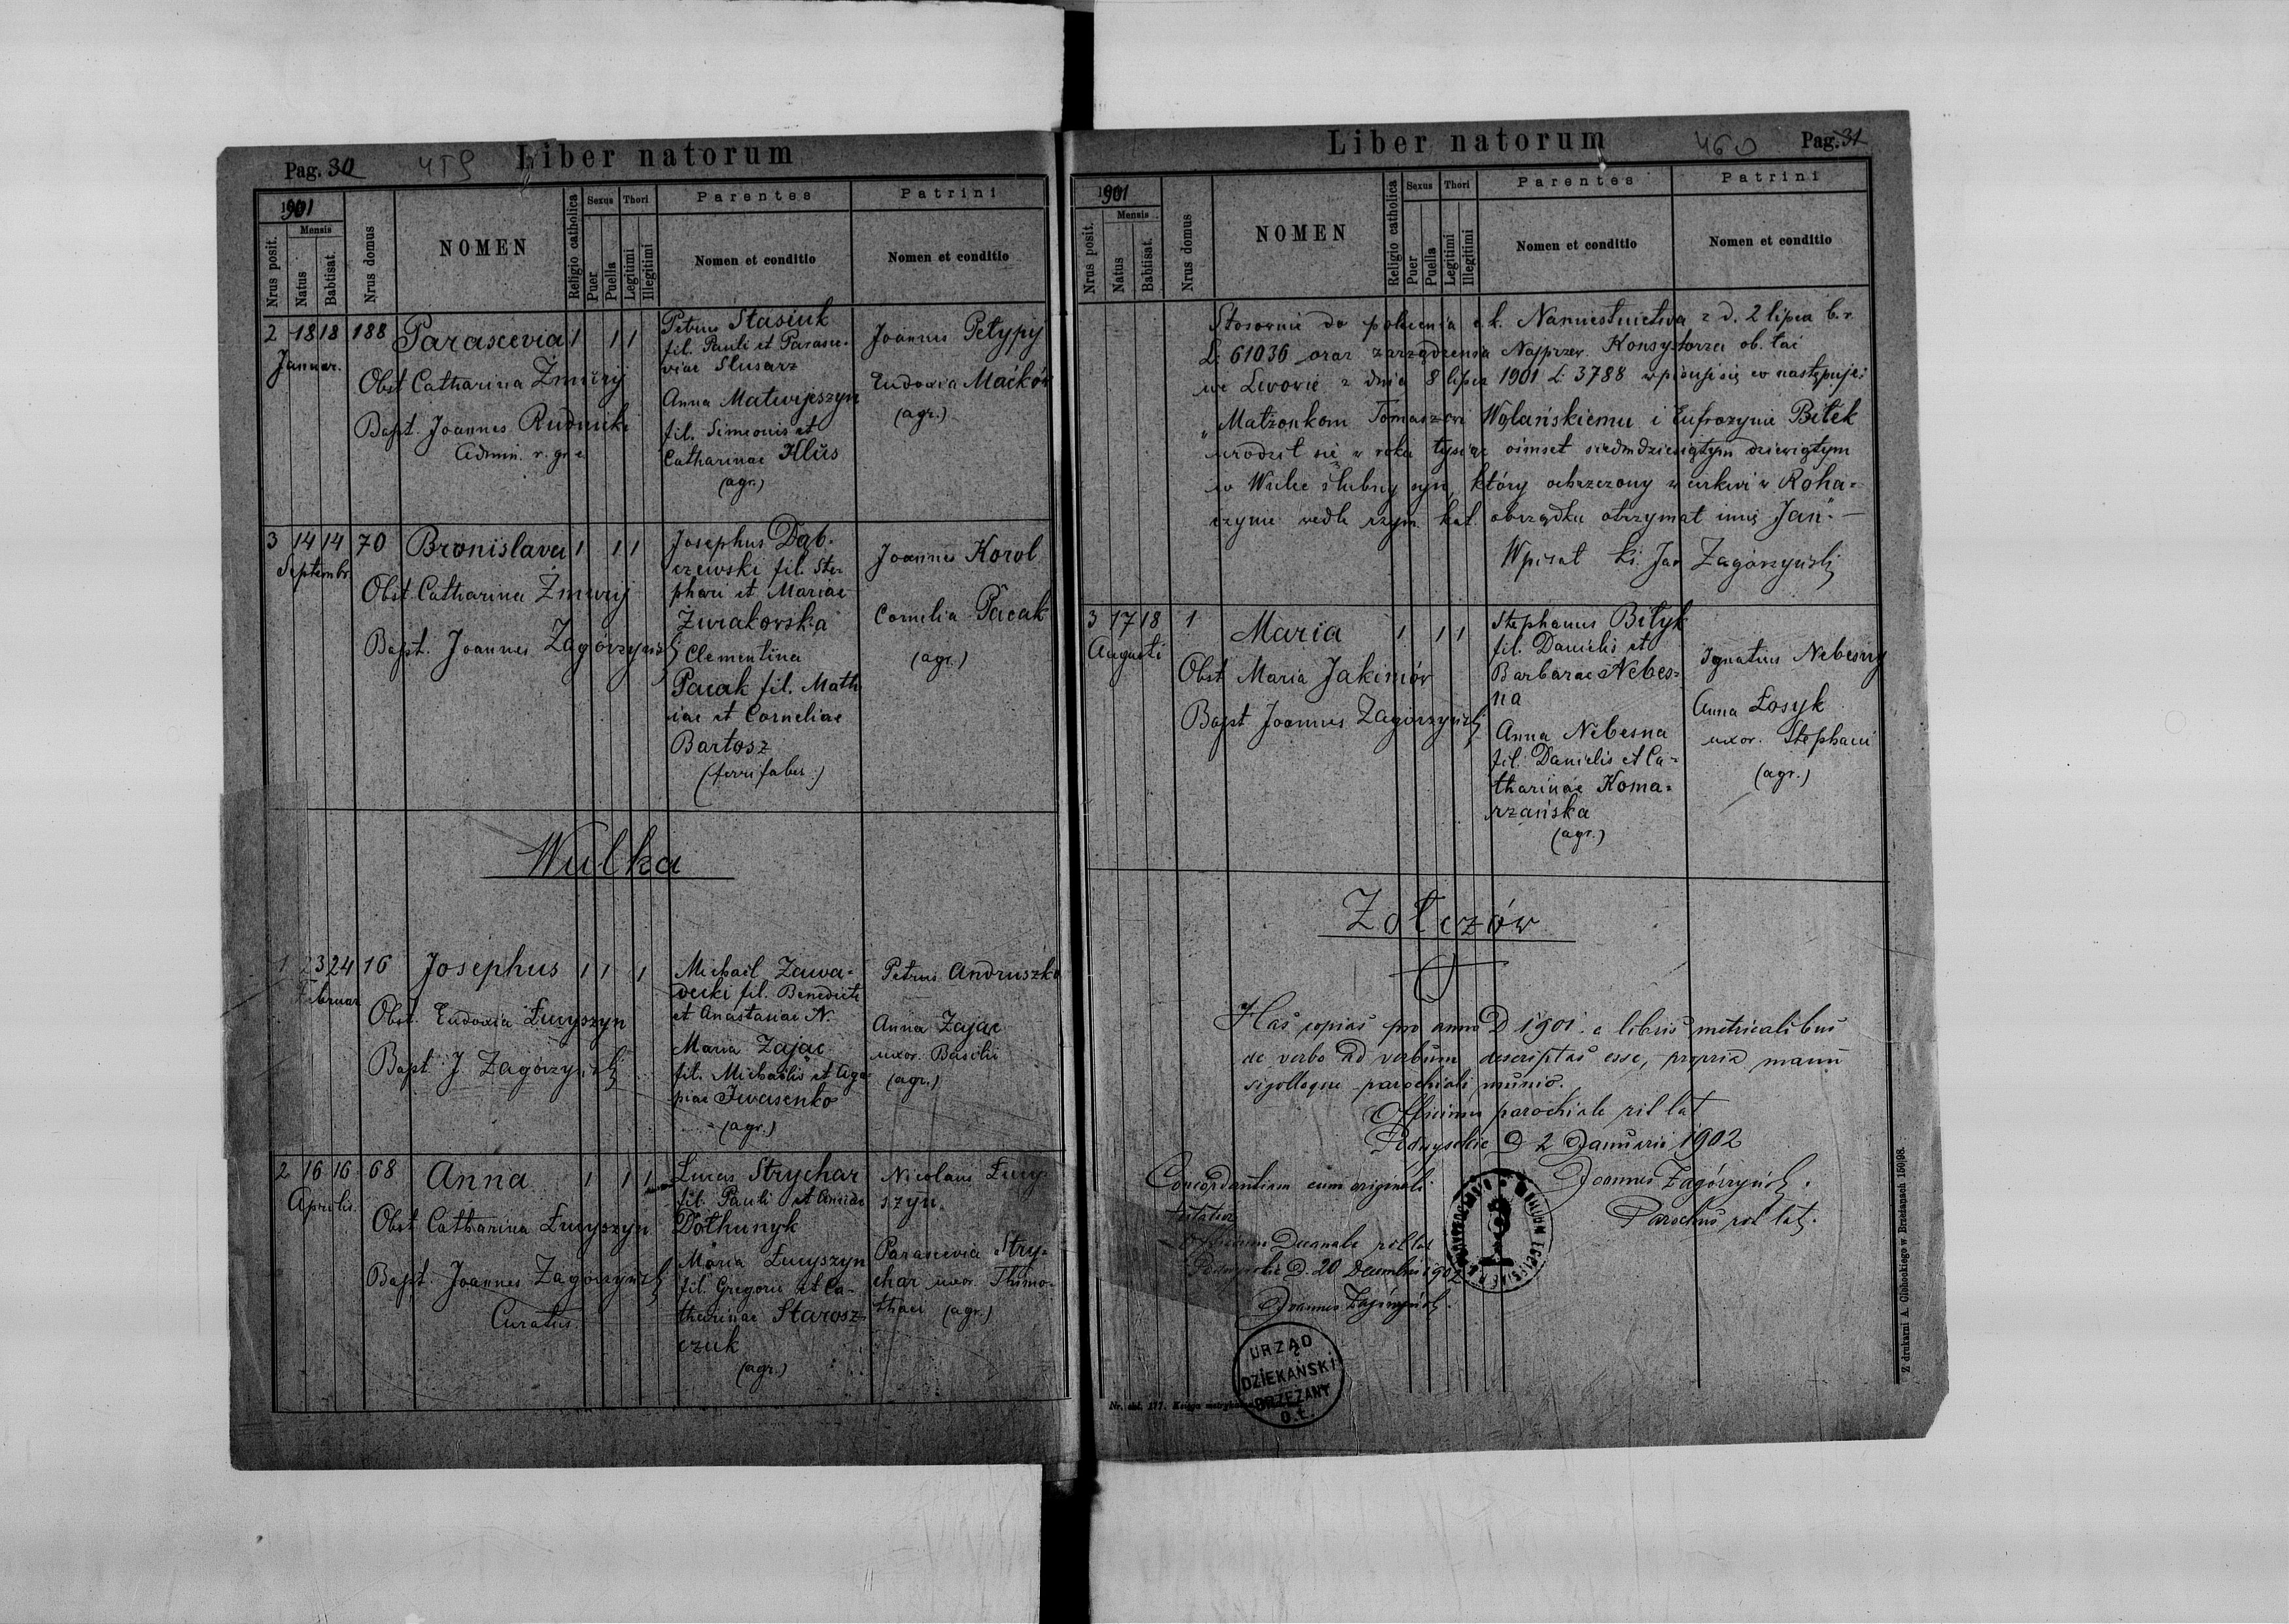 Pag. 30 459 Liber natorum
1901
Nrus posit.
Mensis
Natus
Babtisat.
Nrus domus
NOMEN
Religio catholica
Sexus
Puer
Puella
Thori
Legitimi
Illegitimi
Parentes
Nomen et conditio
Patrini
Nomen et conditio
2 18 18 188 Parascevia 1 1 1
Januar.
Obst Catharina Żmurij
Bapt. Joannes Rudnicki
Admin. r. gr.
Petrus Stasiuk
fil. Pauli et Parasce-
viae Slusarz
Anna Matwijeszyn
fil. Simeonis et
Catharinae Klus
(agr.)
Joannes Petypyj
Eudoxia Maćków
(agr.)
3 14 14 70 Bronislava 1 1 1
Septembr.
Obst. Catharina Żmurij
Bapt. Joannes Zagórzyński
Josephus Dąb-
czewski fil. Ste-
phani et Mariae
Żurakovska
Clementina
Pacak fil. Math
iae et Corneliae
Bartosz
(ferri faber.)
Joannes Korol
Cornelia Pacak
(agr.)
Wulka
1 23 24 16 Josephus 1 1 1
Februar
Obst. Eudoxia Łucyszyn
Bapt J. Zagórzyński
Michael Zawa-
decki fil. Benedicti
et Anastasiae N.
Maria Zając
fil. Michaelis et Aga-
piae Iwasenko
(agr.)
Petrus Andruszko
Anna Zając
uxor. Basilii
(agr.)
2 16 16 68 Anna 1 1 1
Aprilis
Obst Catharina Łucyszyn
Bapt Joannes Zagórzyński
Curatus
Lucas Strychar
fil. Pauli et Anniae
Dołhunyk
Maria Łucyszyn
fil. Gregorii et Ca-
tharinae Starosz-
czuk
(agr.)
Nicolaus Łucy-
szyn.
Parascevia Stry-
char uxor. Thimo-
thaei (agr.)
Liber natorum 460 Pag. 31
1901
Nrus posit.
Mensis
Natus
Babtisat.
Nrus domus
NOMEN
Religio catholica
Sexus
Puer
Puella
Thori
Legitimi
Illegitimi
Parentes
Nomen et conditio
Patrini
Nomen et conditio
Stosownie do polecenia c. k. Namiestnictwa z d. 2 lipca b. r.
L. 61036 oraz zarządzenia Najprzew. Konsystorza ob. łac
we Lwowie z dnia 8 lipca 1901 L. 3788 wpisuje się co następuje:
„Małżonkom Tomaszowi Wolańskiemu i Eufrozynie Bilek
urodził się w roku tysiąc ośmset siedmdziesiątym dziewiątym
w Wulce ślubny syn, który ochrzczony w cerkwi w Roha-
czynie wedle rzym. kat. obrządku otrzymał imię Jan."—
Wpisał ks. Jan Zagórzyński
3 17 18 1 Maria 1 1 1
Augusti
Obst Maria Jakimów
Bapt Joannes Zagórzyński
Stephanus Biłyk
fil. Danielis et
Barbarae Nebes-
na
Anna Nebesna
fil. Danielis et Ca-
tharinae Koma-
rzańska
(agr.)
Ignatius Nebesny
Anna Łosyk
uxor. Stephani
(agr.)
Żołczów
Has copias pro anno D 1901 e libris metricalibus
de verbo ad verbum descriptas esse, propria manu
sigilloque parochiali munio.
Officium parochiale rit lat
D 2 Januarii 1902
Joannes Zagórzyński.
Parochus rit lat.
Concordantiam cum originali
testatur
Officium Decanale rit lat
D. 20 Decembris 1902
Joannes Zagórzyński.
URZĄD
DZIEKAŃSKI
BRZEŻANY
O.Ł.
Z drukarni A. Głuhockiego w Brzeżanach 150|98.